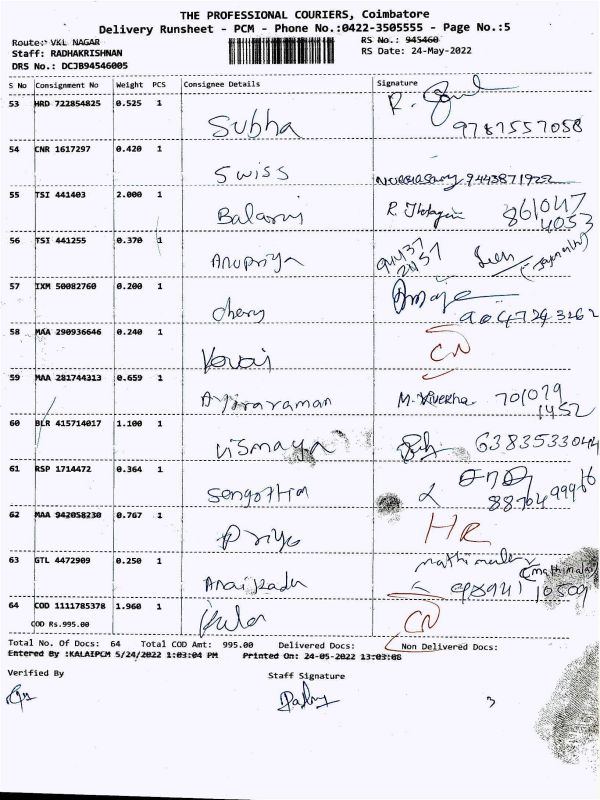 THE PROFESSIONAL COURIERS, Coimbatore
Delivery Runsheet - PCM - Phone No.:0422-3505555 - Page No.:5
Route: VKL NAGAR
RS No.: 945460
Staff: RADHAKRISHNAN
RS Date: 24-May-2022
DRS No.: DCJB94546005
S No Consignment No Weight PCS Consignee Details Signature
53 HRD 722854825 0.525 1 Subha 9787557058
54 CNR 1617297 0.420 1 Swiss 9443871922
55 TSI 441403 2.000 1 861047
4053
56 TSI 441255 0.370 1 Anupriya 94437
21457
57 IXM 50082760 0.200 1 chery
58 MAA 290936646 0.240 1 Kovai CN
59 MAA 281744313 0.659 1 M. Kiverkha 701079
1452
60 BLR 415714017 1.100 1 Vismaya 6383533044
61 RSP 1714472 0.364 1
62 MAA 942058230 0.767 1 Priya HR
63 GTL 4472909 0.250 1
64 COD 1111785378 1.960 1 CN
COD Rs.995.00
Total No. Of Docs: 64 Total COD Amt: 995.00 Delivered Docs: Non Delivered Docs:
Entered By :KALAIPCM 5/24/2022 1:03:04 PM Printed On: 24-05-2022 13:03:08
Verified By Staff Signature
3